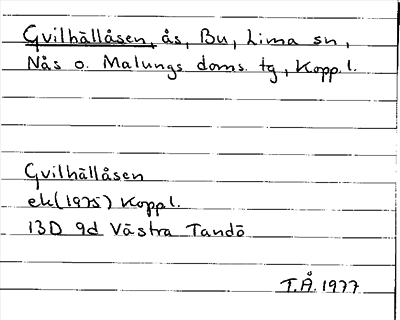 Gvilhällåsen, ås, Bu, Lima sn,
Nås o. Malungs doms. tg, Kopp. l.
Gvilhällåsen
ek (1975) Koppl.
13D 9d Västra Tandö
T.Å. 1977